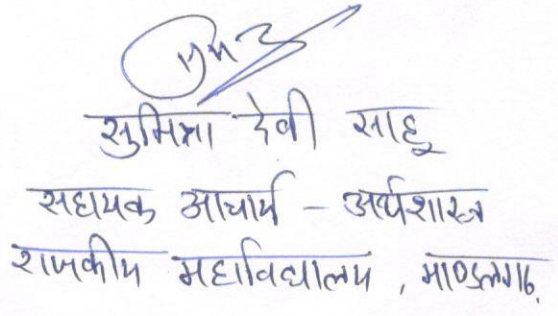 सुमित्रा देवी साहू
सहायक आचार्य - अर्थशास्त्र
राजकीय महाविद्यालय, माण्डलगढ़